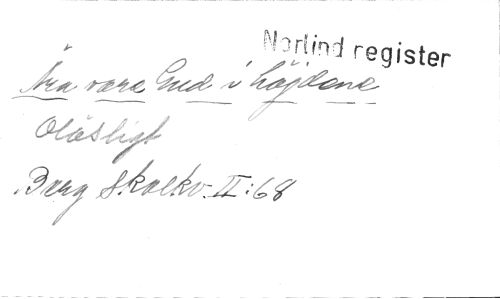 Norlind register
Ära vare Gud i höjdene
Oläsligt
Berg Skolkv. II:68